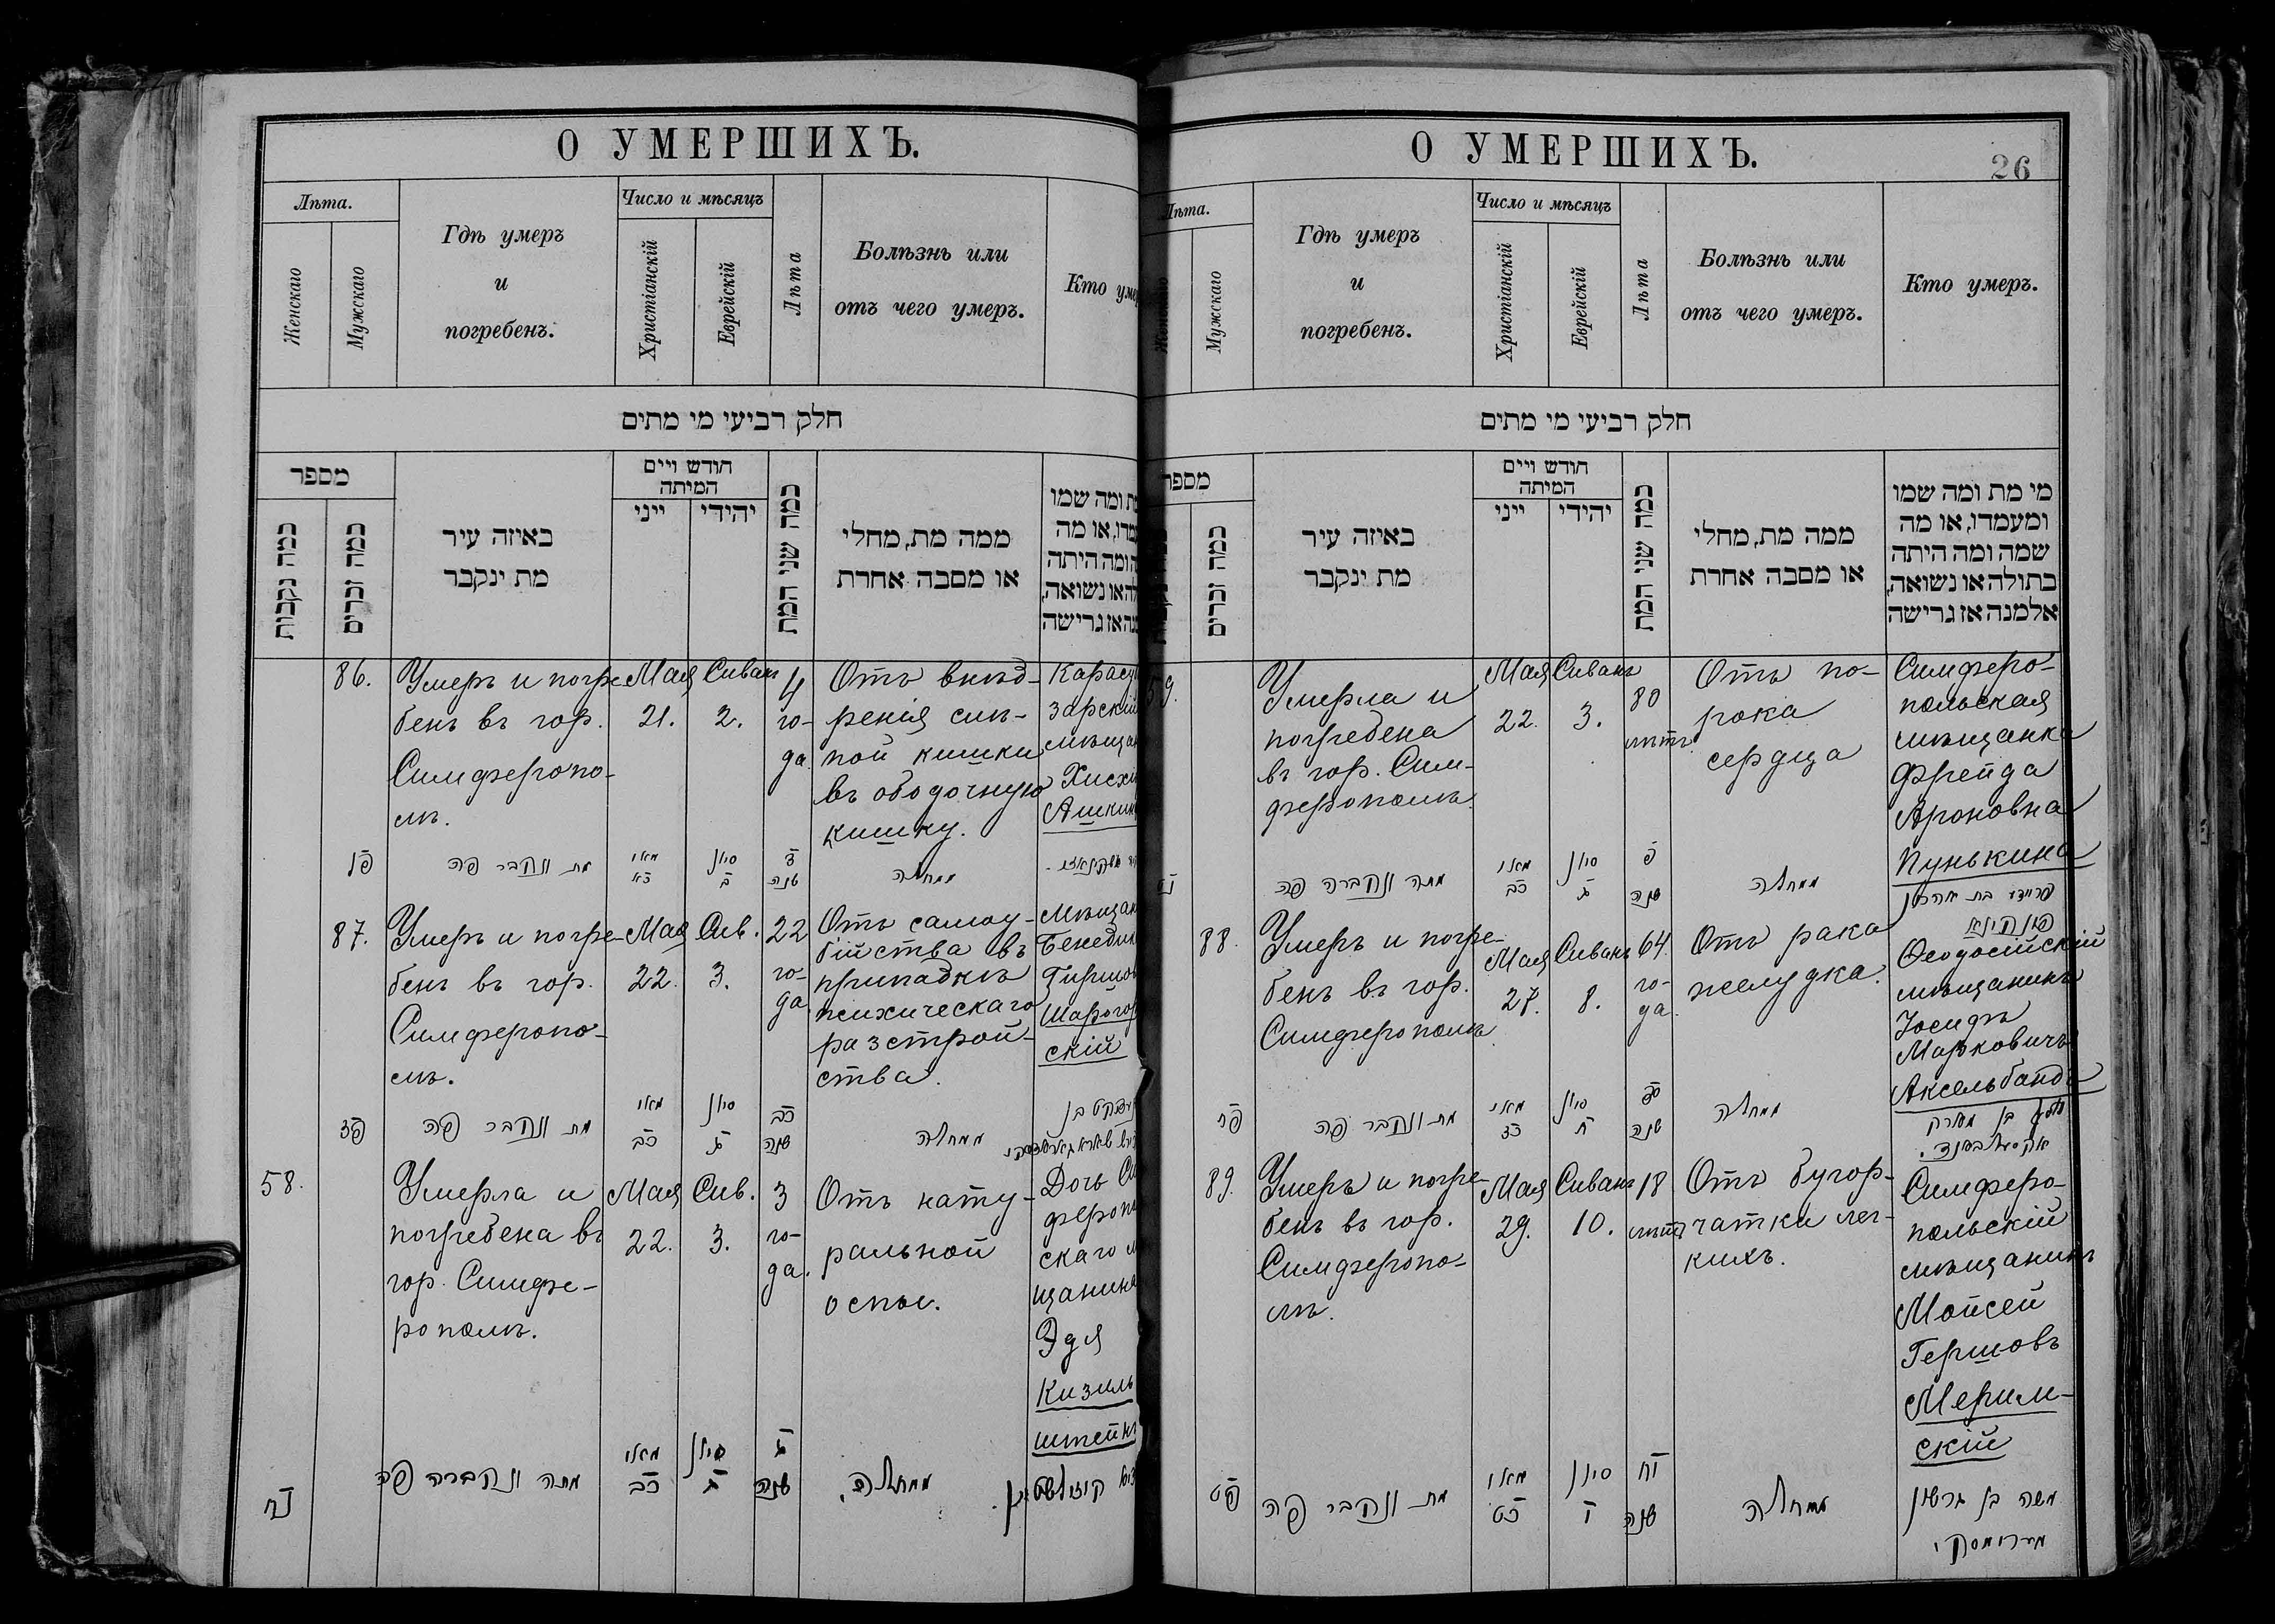 О УМЕРШИХЪ.
Лѣта.
Женскаго
Мужскаго
Гдѣ умеръ
и
погребенъ.
Число и мѣсяцъ
Христіанскій
Еврейскій
Лѣта
Болѣзнь или
отъ чего умеръ.
Кто умер
חלק רביעי מי מתים
מספר
כמה נקבות
כמה זכרים
באיזה עיר
מת ינקבר
חודש ויים
המיתה
ייני
יהידי
כמה שני המת
ממה מת, מחלי
או מסבה אחרת
ומה שמו
או מה
ומה היתה
או נשואה,
אז גרישה
86.
Умеръ и погре-
бенъ въ гор.
Симферопо-
лѣ.
Мая
21.
Сиванъ
2.
4
го-
да.
Отъ внѣд-
ренія слѣ-
пой кишки
въ ободочную
кишку.
Карасу
зарскій
мѣщан
Хисхі
Ашкин
פו
מת ונקבר פה
מאי
כא
סיון
ב
ד
שנה
ממחלה
אשכנאזי.
87.
Умеръ и погре-
бенъ въ гор.
Симферопо-
лѣ.
Мая
22.
Сив.
3.
22
го-
да.
Отъ самоу-
бійства въ
припадкѣ
психическаго
разстрой-
ства.
Мѣщан
Бенедик
Гиршов
Шарогор
скій
פז
מת ונקבר פה
מאי
כב
סיון
ג
כב
שנה
ממחלה
בן
58.
Умерла и
погребена въ
гор. Симфе-
рополѣ.
Мая
22.
Сив.
3.
3
го-
да.
Отъ нату-
ральной
оспы.
Дочь Си
феропо
скаго м
щанина
Эдя
Кизиль
штейнъ
נח
מתה ונקברה פה
מאי
כב
סיון
ג
ג
שנה
ממחלה.
קיזילשטיין.
О УМЕРШИХЪ.
26
Лѣта.
Женскаго
Мужскаго
Гдѣ умеръ
и
погребенъ.
Число и мѣсяцъ
Христіанскій
Еврейскій
Лѣта
Болѣзнь или
отъ чего умеръ.
Кто умеръ.
חלק רביעי מי מתים
מספר
כמה זכרים
באיזה עיר
מת ינקבר
חודש ויים
המיתה
ייני
יהידי
כמה שני המת
ממה מת, מחלי
או מסבה אחרת
מי מת ומה שמו
ומעמדו, או מה
שמה ומה היתה
בתולה או נשואה,
אלמנה אז גרישה
59.
Умерла и
погребена
въ гор. Сим-
ферополѣ.
Мая
22.
Сиванъ
3.
80
лѣтъ.
Отъ по-
рока
сердца
Симферо-
польская
мѣщанка
Фрейда
Ароновна
Пунькина
נט
מתה ונקברה פה
מאי
כב
סיון
ג
פ
שנה
ממחלה
פריידא בת אהרן
פונקינא
88.
Умеръ и погре-
бенъ въ гор.
Симферополѣ
Мая
27.
Сиванъ
8.
64.
го-
да.
Отъ рака
желудка.
Ѳеодосійскій
мѣщанинъ
Іосифъ
Марковичъ
Аксельбандъ
פח
מת ונקבר פה
מאי
כז
סיון
ח
סד
שנה
ממחלה
יוסף בן מארק
אקסעלבאנד.
89.
Умеръ и погре-
бенъ въ гор.
Симферопо-
лѣ.
Мая
29.
Сиванъ
10.
18
лѣтъ
Отъ бугор-
чатки лег-
кихъ.
Симферо-
польскій
мѣщанинъ
Мойсей
Гершовъ
Мерим-
скій
פט
מת ונקבר פה
מאי
כט
סיון
י
יח
שנה
ממחלה
משה בן גרשון
מערימסקי